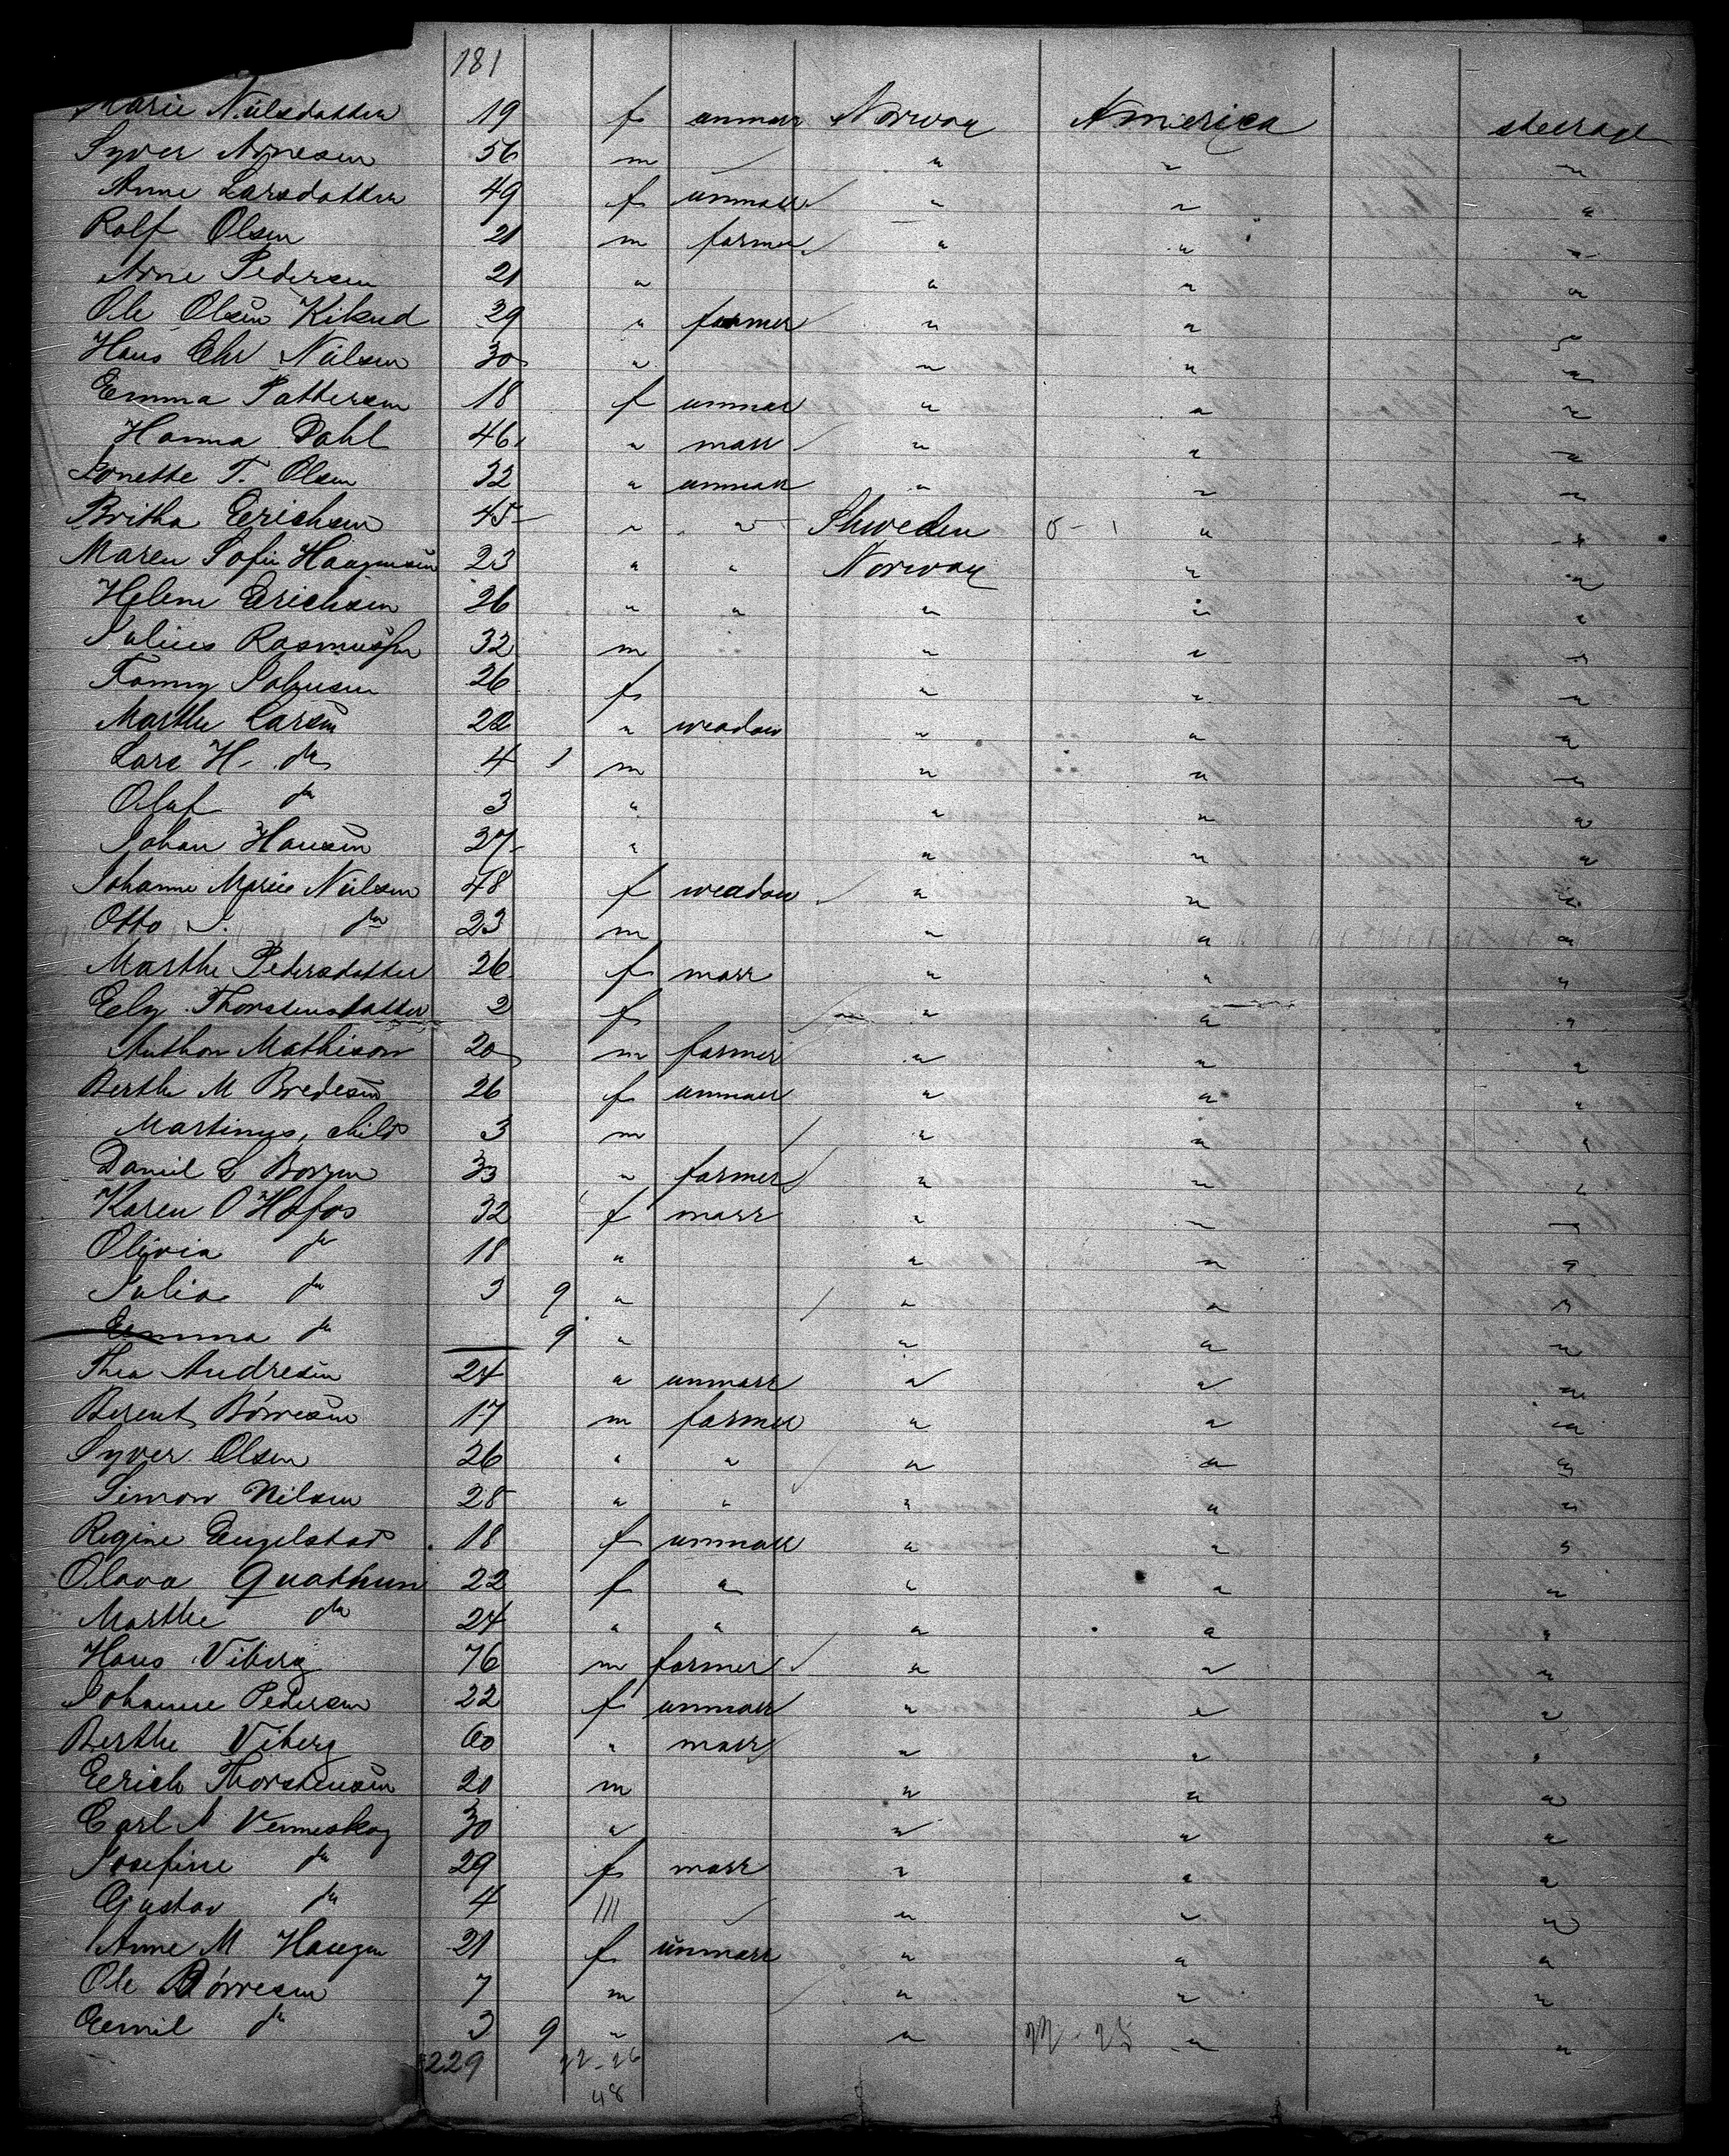 181
Marie Nielsdatter 19 f unmarr Norway America steerage
Syver Arnesen 56 m " " "
Anne Larsdatter 49 f unmarr " " "
Rolf Olsen 21 m farmer " " "
Arne Pedersen 21 " " " "
Ole Olsen Kilsud 29 " farmer " " "
Hans Chr Nielsen 30 " " " "
Emma Pattersen 18 f unmar " " "
Hanna Dahl 46 " marr " " "
Jonette T. Olsen 32 " unmarr " " "
Britha Erichsen 45 " " Shweden " "
Maren Sofie Haagensen 23 " " Norway " "
Helene Erichsen 26 " " " " "
Julius Rasmussen 32 m " " "
Fanny Johnsen 26 f " " "
Marthe Larsen 22 " weadow " " "
Lars H. do 4 m " " "
Olaf do 3 " " " "
Johan Hansen 27 " " " "
Johanne Marie Nielsen 48 f weadow " " "
Otto J. do 23 m " " "
Marthe Pedersdatter 26 f marr " " "
Eely Thorstensdatter 2 f " " "
Anthon Mathison 20 m farmer " " "
Berthe M Bredesen 26 f unmarr " " "
Martinus, child 3 m " " "
Daniel S Borgen 33 " farmer " " "
Karen O Hofos 32 f marr " " "
Olivia do 18 " " " "
Julia do 3 9 " " " "
Emma do 9 " " " "
Thea Andresen 24 " unmarr " " "
Berent Börresen 17 m farmer " " "
Syver Olsen 26 " " " " "
Simon Nilsen 28 " " " " "
Regine Engelstad 18 f unmarr " " "
Olava Quathum 22 f " " " "
Marthe do 24 " " " " "
Hans Viberg 76 m farmer " " "
Johanne Pedersen 22 f unmarr " " "
Berthe Viberg 60 " marr " " "
Eerich Thorstensen 20 m " " "
Carl A Venneskog 30 " " " "
Josefine do 29 f marr " " "
Gustav do 4 m " " "
Anne M Haugen 21 f unmarr " " "
Ole Börresen 7 m " " "
Eemil do 3 9 " " 22-25 " "
229 22-26
48